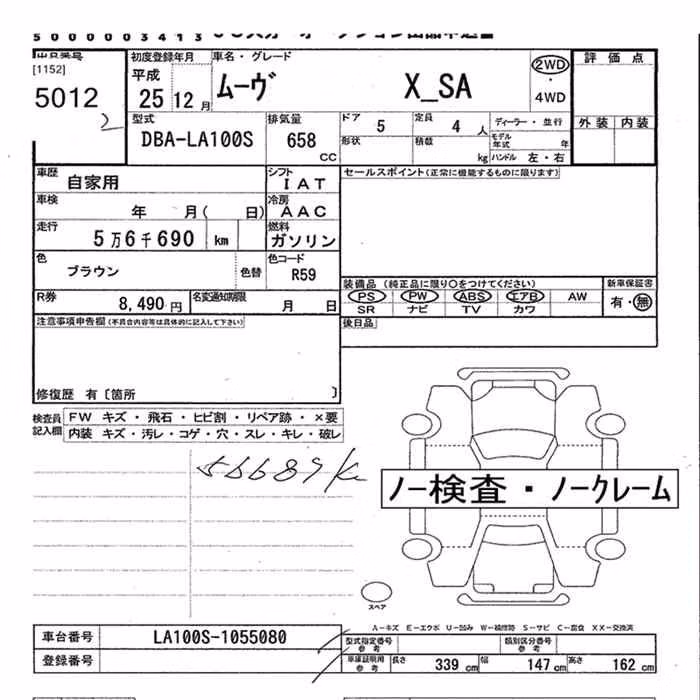 5000003413
[1152]
5012
2
初度登録年月
平成
25 12月
車名・グレード
ムーヴ X_SA
2WD
・
4WD
評価点
外装 内装
型式
DBA-LA100S
排気量
658
CC
ドア
5
定員
4 人
ディーラー・並行
形状
積載
kg
モデル年式 年
ハンドル 左・右
車歴
自家用
シフト
IAT
車検
年 月( 日)
冷房
AAC
走行
5万6千690 km
燃料
ガソリン
色
ブラウン
色替
色コード
R59
R券
8,490 円
名変通知期限
月 日
セールスポイント(正常に機能するものに限ります)
装備品 (純正品に限り○をつけてください)
PS PW ABS エアB AW
SR ナビ TV カワ
新車保証書
有・無
後日品
注意事項申告欄(不具合内容等は具体的に記入して下さい)
修復歴 有〔箇所 〕
検査員記入欄
FW キズ・飛石・ヒビ割・リペア跡・×要
内装 キズ・汚レ・コゲ・穴・スレ・キレ・破レ
56689 K
ノー検査・ノークレーム
スペア
車台番号
LA100S-1055080
登録番号
型式指定番号
参考
類別区分番号
参考
車庫証明用
参考
長さ 339 cm 幅 147 cm 高さ 162 cm